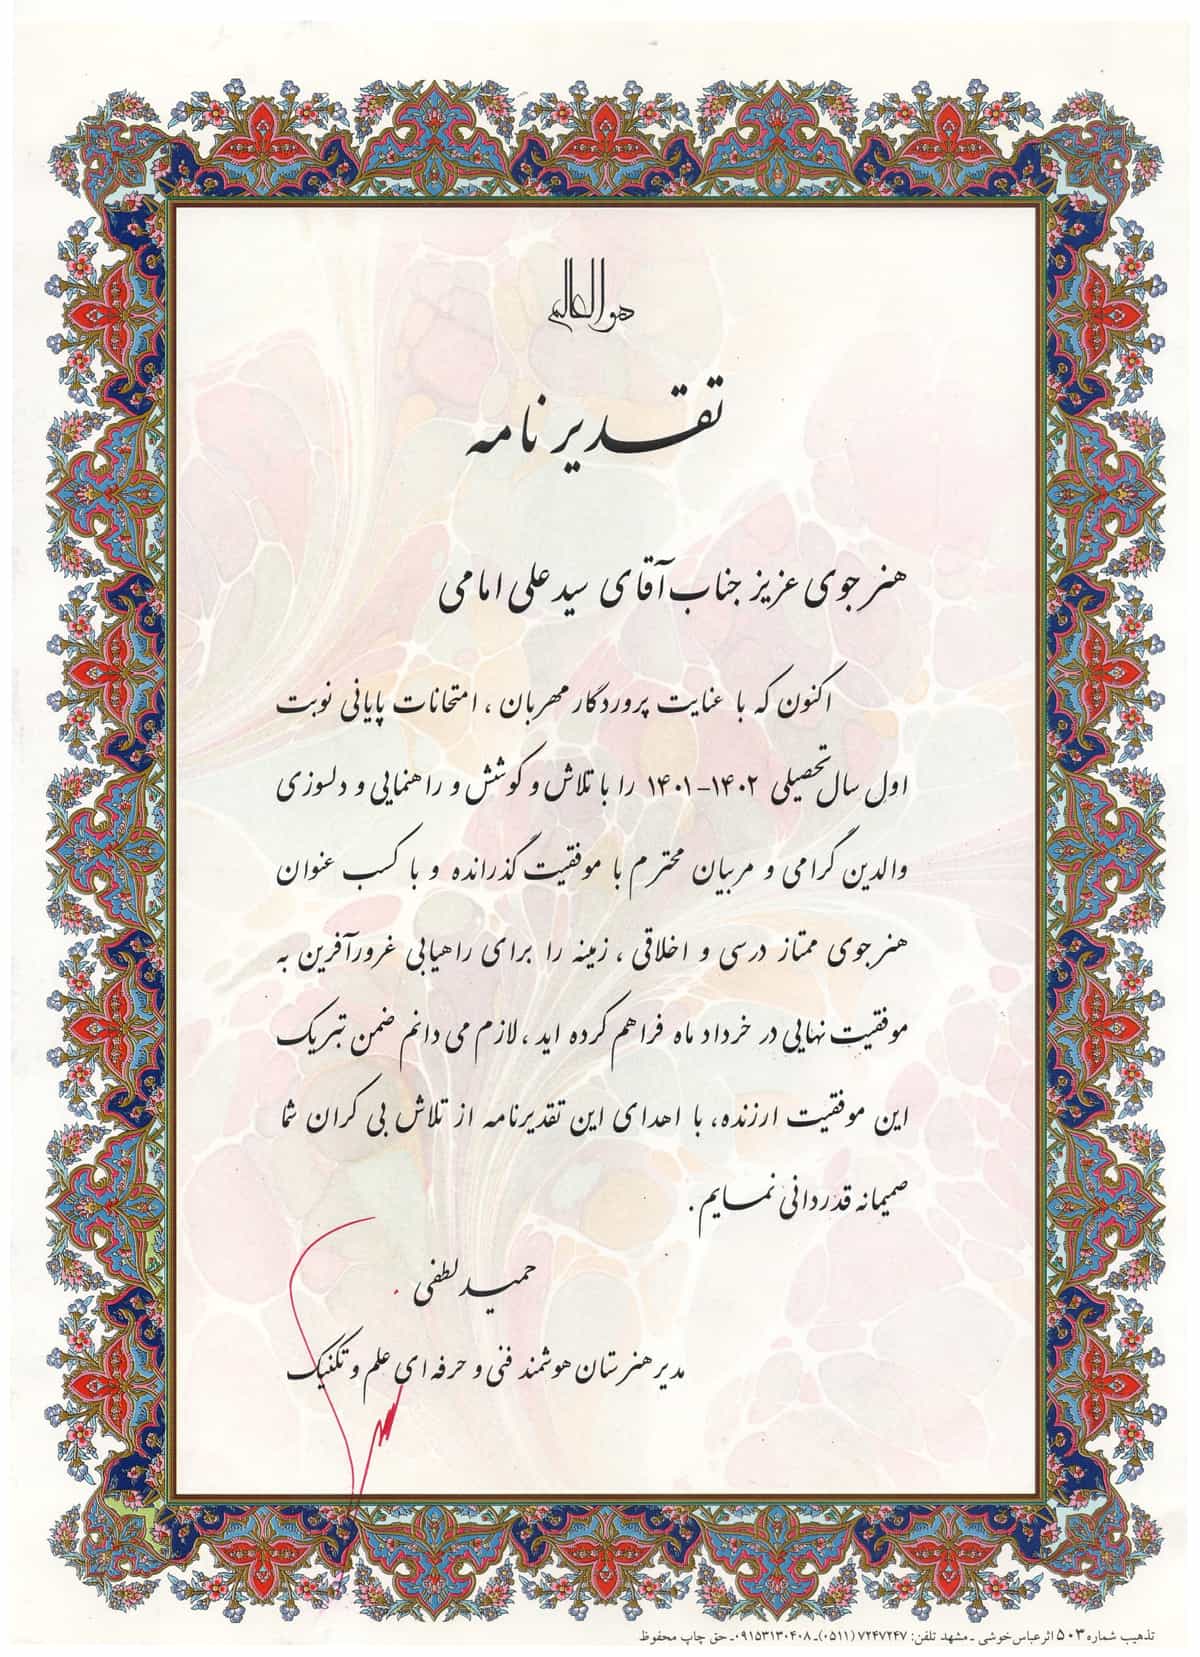 هو العالم
تقدیر نامه
هنرجوی عزیز جناب آقای سید علی امامی
اکنون که با عنایت پروردگار مهربان ، امتحانات پایانی نوبت
اول سال تحصیلی ۱۴۰۲-۱۴۰۱ را با تلاش و کوشش و راهنمایی و دلسوزی
والدین گرامی و مربیان محترم با موفقیت گذرانده و با کسب عنوان
هنرجوی ممتاز درسی و اخلاقی ، زمینه را برای راهیابی غرورآفرین به
موفقیت نهایی در خرداد ماه فراهم کرده اید ، لازم می دانم ضمن تبریک
این موفقیت ارزنده، با اهدای این تقدیرنامه از تلاش بی کران شما
صمیمانه قدردانی نمایم.
حمید لطفی
مدیر هنرستان هوشمند فنی و حرفه ای علم و تکنیک
تذهیب شماره ۵۰۳ اثر عباس خوشی - مشهد تلفن: ۷۲۴۷۲۴۷ (۰۵۱۱)- ۰۹۱۵۳۱۳۰۴۰۸- حق چاپ محفوظ